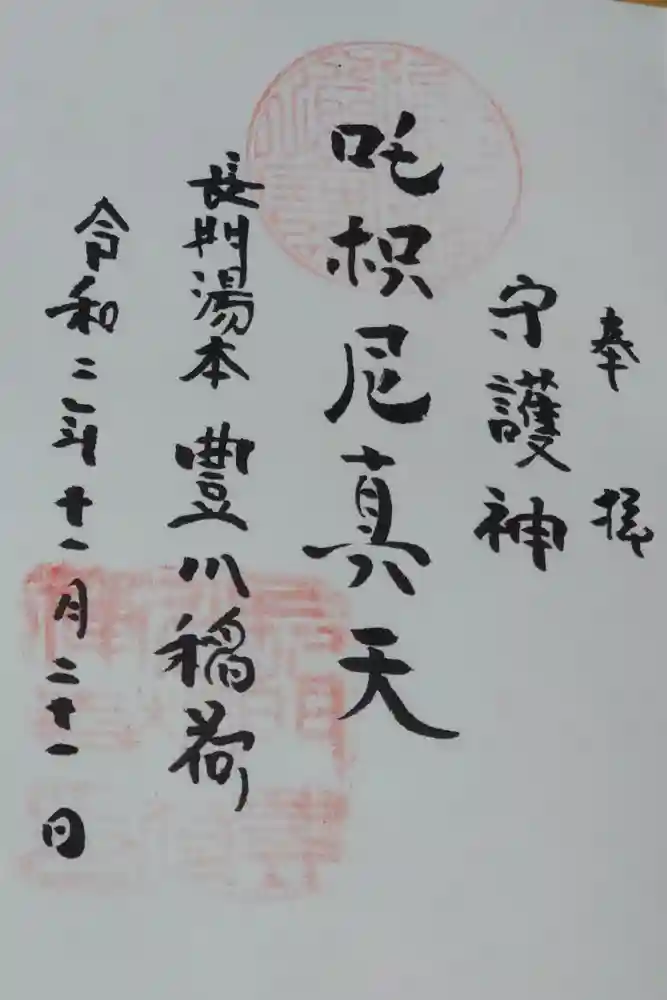 奉拝
守護神
吒枳尼真天
長門湯本 豊川稲荷
令和二年十一月二十一日